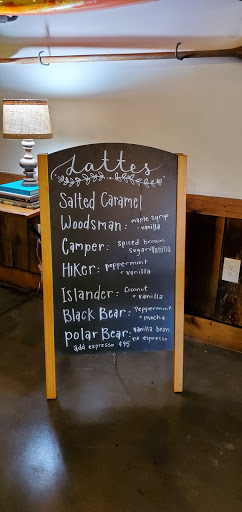 Lattes
Salted Caramel
Woodsman: maple syrup
+ vanilla
Camper: spiced brown
sugar + vanilla
Hiker: peppermint
+ vanilla
Islander: coconut
+ vanilla
Black Bear: Peppermint
+ mocha
Polar Bear: vanilla bean
no espresso
add espresso $.95